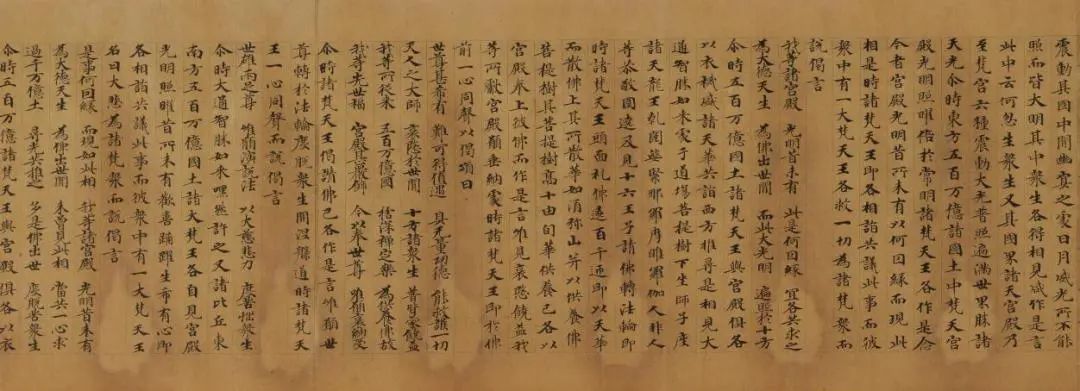 震動其國中間幽冥之處日月威光所不能
照而皆大明其中衆生各得相見咸作是言
此中云何忽生衆生又其國界諸天宮殿乃
至梵宮六種震動大光普照遍滿世界勝諸
天光尒時東方五百万億諸國土中梵天宮
殿光明照曜倍於常明諸梵天王各作是念
今者宮殿光明昔所未有以何因緣而現此
相是時諸梵天王即各相詣共議此事而彼
衆中有一大梵天王名救一切為諸梵衆而
說偈言
我等諸宮殿 光明昔未有 此是何因緣 宜各共求之
為大德天生 為佛出世間 而此大光明 遍照於十方
尒時五百万億國土諸梵天王與宮殿俱各
以衣裓盛諸天華共詣西方推尋是相見大
通智勝如來處于道場菩提樹下坐師子座
諸天龍王乾闥婆緊那羅摩睺羅伽人非人
等恭敬圍遶及見十六王子請佛轉法輪即
時諸梵天王頭面礼佛遶百千匝即以天華
而散佛上其所散華如須弥山并以供養佛
菩提樹其菩提樹高十由旬華供養已各以
宮殿奉上彼佛而作是言唯見哀愍饒益我
等所獻宮殿願垂納處時諸梵天王即於佛
前一心同聲以偈頌曰
世尊甚希有 難可得值遇 具无量功德 能救護一切
天人之大師 哀愍於世間 十方諸衆生 普皆蒙饒益
我等所從來 五百万億國 捨深禪定樂 為供養佛故
我等先世福 宮殿甚嚴飾 今以奉世尊 唯願哀納受
尒時諸梵天王偈讚佛已各作是言唯願世
尊轉於法輪度脫衆生開涅槃道時諸梵天
王一心同聲而說偈言
世雄兩足尊 唯願演說法 以大慈悲力 度苦惱衆生
尒時大通智勝如來嘿然許之又諸比丘東
南方五百万億國土諸大梵王各自見宮殿
光明照曜昔所未有歡喜踊躍生希有心即
各相詣共議此事而彼衆中有一大梵天王
名曰大悲為諸梵衆而說偈言
是事何因緣 而現如此相 我等諸宮殿 光明昔未有
為大德天生 為佛出世間 未曾見此相 當共一心求
過千万億土 尋光共推之 多是佛出世 度脫苦衆生
尒時五百万億諸梵天王與宮殿俱各以衣